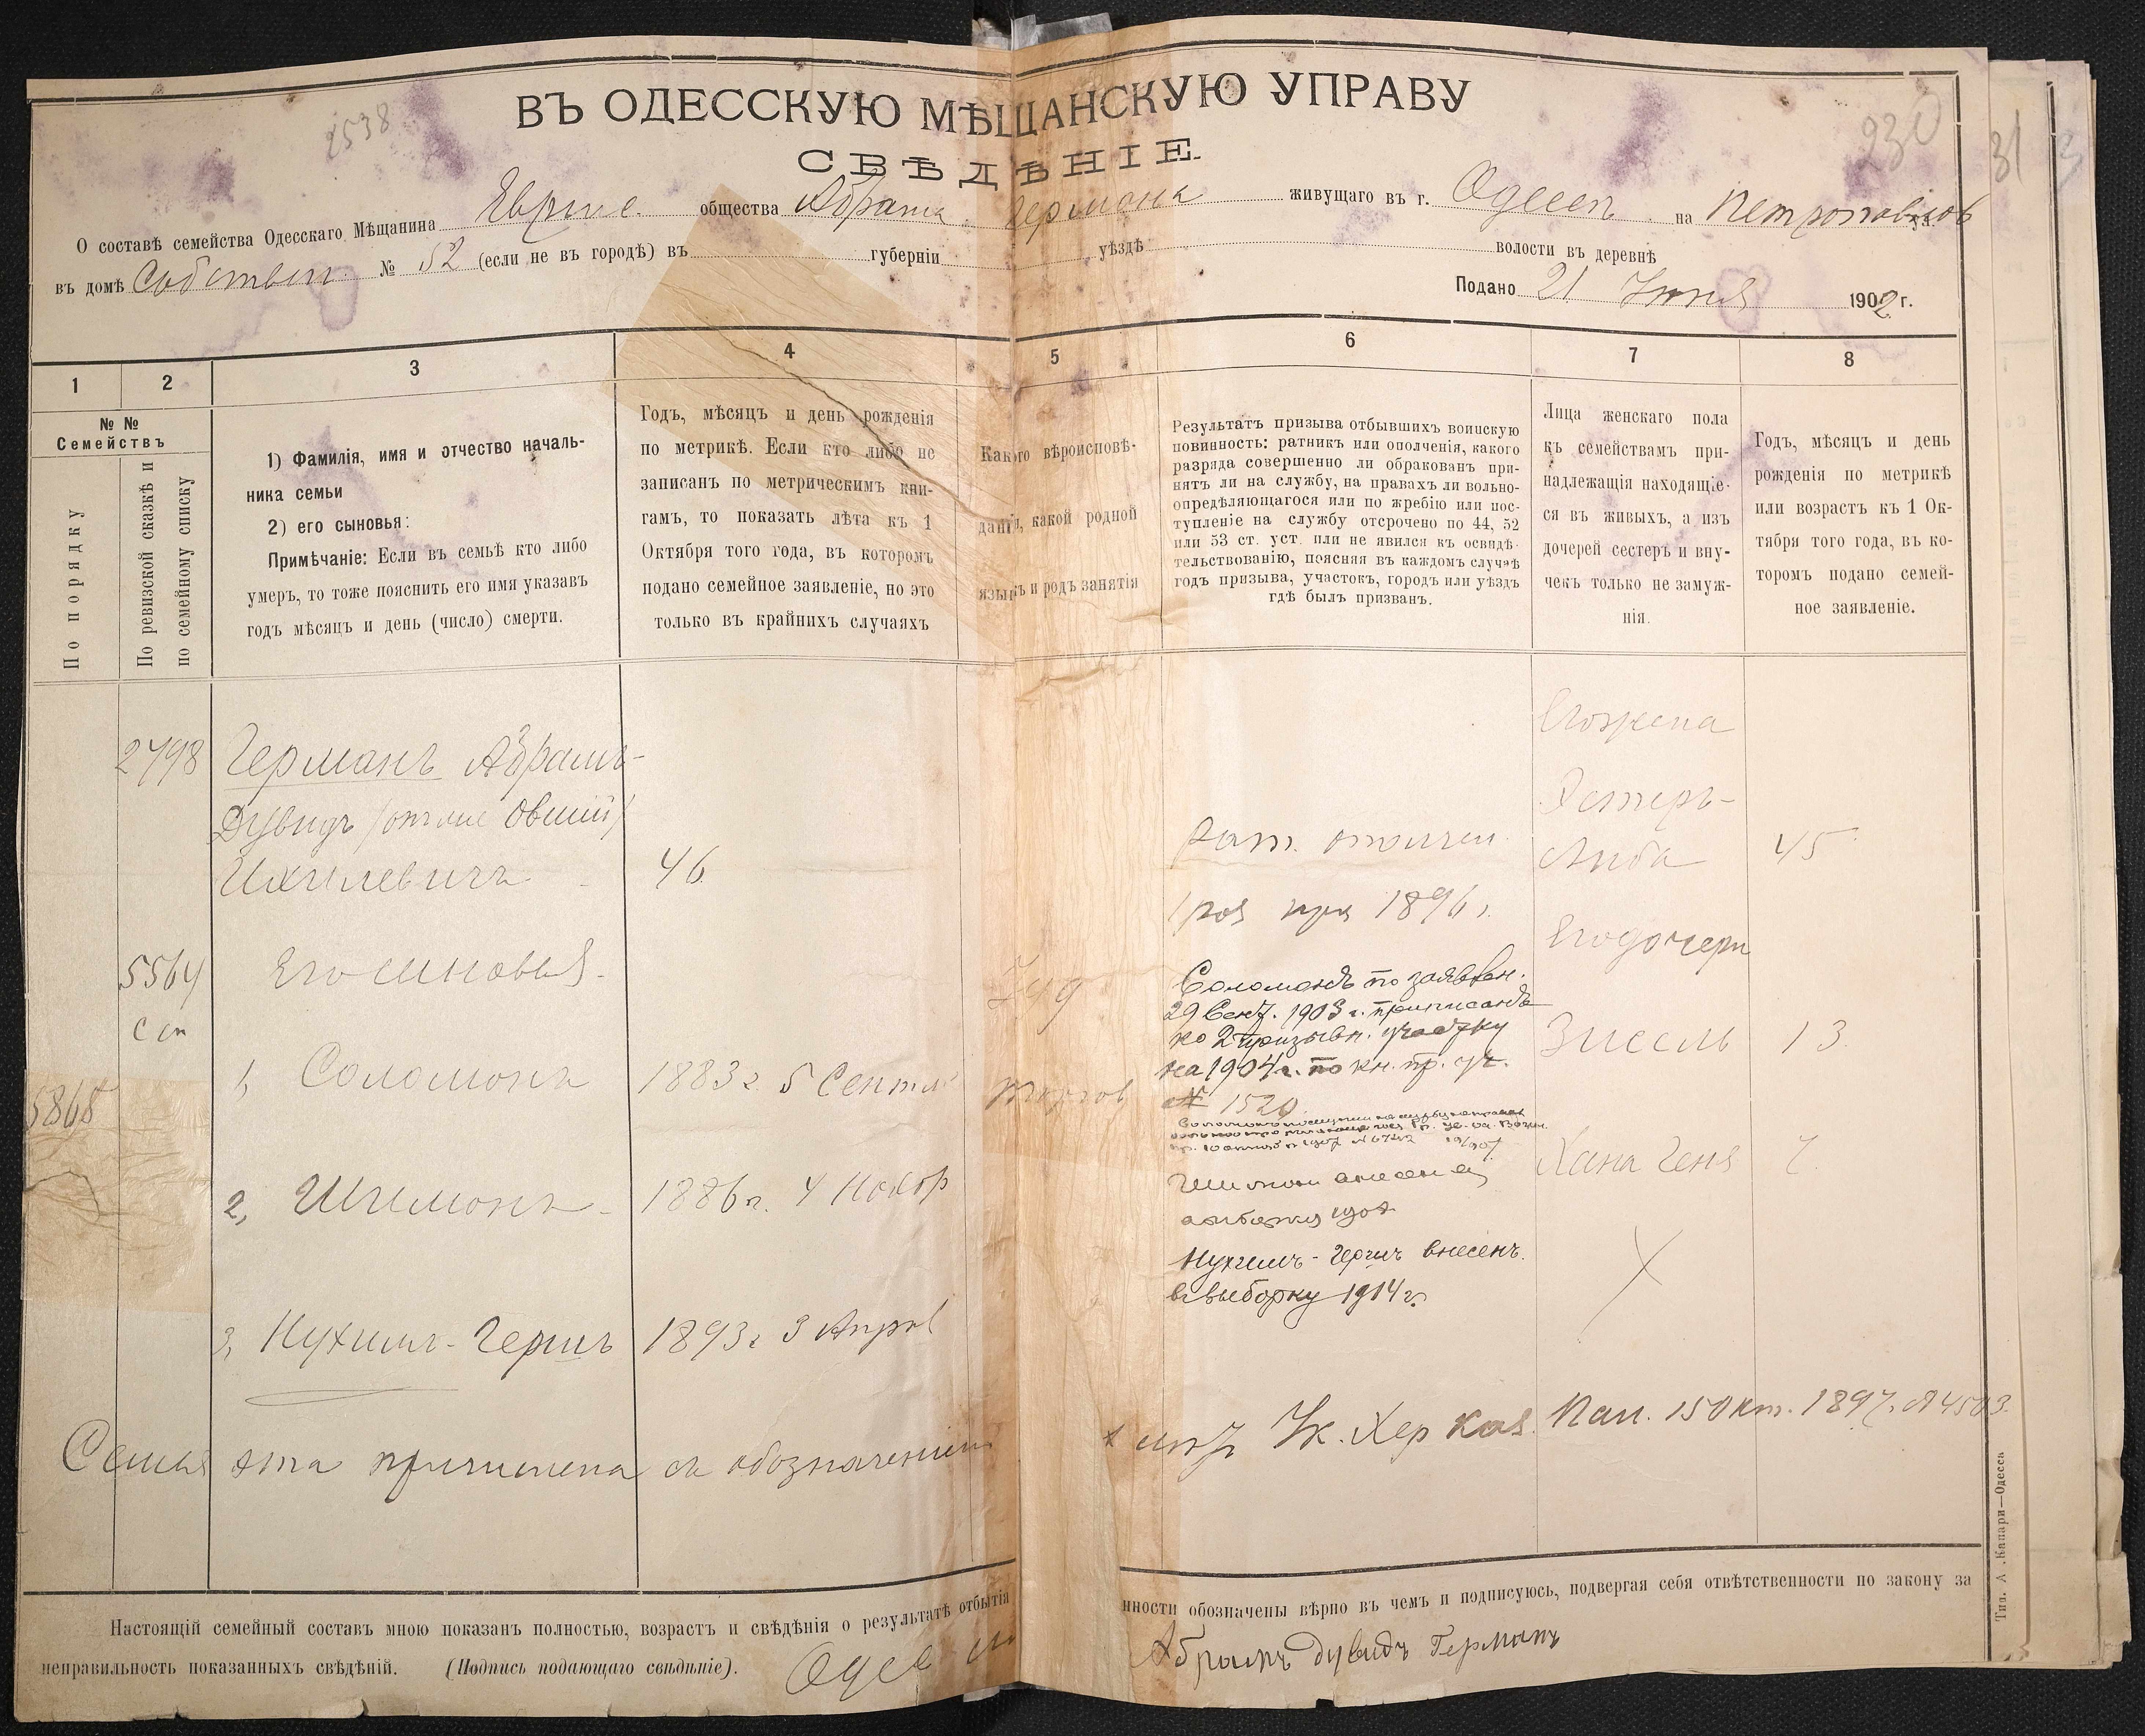 2538
230
31
ВЪ ОДЕССКУЮ МѢЩАНСКУЮ УПРАВУ
СВѢДѢНІЕ.
О составѣ семейства Одесскаго Мѣщанина общества Абрама Германа живущаго въ г. Одессѣ на Петропавлов ул.
въ домѣ Собствен. № 52 (если не въ городѣ) въ губерніи уѣздѣ волости въ деревнѣ
Подано 21 1902 г.
1
2
3
4
5
6
7
8
№ №
Семействъ
По порядку
По ревизской сказкѣ и
по семейному списку
1) Фамилія, имя и отчество началь-
ника семьи
2) его сыновья:
Примѣчаніе: Если въ семьѣ кто либо
умеръ, то тоже пояснить его имя указавъ
годъ мѣсяцъ и день (число) смерти.
Годъ, мѣсяцъ и день рожденія
по метрикѣ. Если кто либо не
записанъ по метрическимъ кни-
гамъ, то показать лѣта къ 1
Октября того года, въ которомъ
подано семейное заявленіе, но это
только въ крайнихъ случаяхъ
Какого вѣроисповѣ-
данія, какой родной
языкъ и родъ занятія
Результатъ призыва отбывшихъ воинскую
повинность: ратникъ или ополченія, какого
разряда совершенно ли обракованъ при-
нятъ ли на службу, на правахъ ли вольно-
опредѣляющагося или по жребію или пос-
тупленіе на службу отсрочено по 44, 52
или 53 ст. уст. или не явился къ освидѣ-
тельствованію, поясняя въ каждомъ случаѣ
годъ призыва, участокъ, городъ или уѣздъ
гдѣ былъ призванъ.
Лица женскаго пола
къ семействамъ при-
надлежащія находящіе-
ся въ живыхъ, а изъ
дочерей сестеръ и вну-
чекъ только не замуж-
нія.
Годъ, мѣсяцъ и день
рожденія по метрикѣ
или возрастъ къ 1 Ок-
тября того года, въ ко-
торомъ подано семей-
ное заявленіе.
2798
Германъ Абрамъ-
Дувидъ (онъ же Овший)
Ихилевичъ 46
5564
Сп
5868
Его сыновья
1, Соломонъ 1883 г. 5 Сентя
2, Шимонъ 1886 г. 4 Ноябр
3, Нухимъ-Гершъ 1893 г 3 Апрел
Іуд
торгов
Рат. ополчен.
1 раз при 1896 г.
Соломонъ по заявлен.
29 Сент. 1903 г. приписанъ
ко 2 призывн. участку
на 1904 г. по кн. пр. уч.
№ 1520
Шимон внесен
выборку
Нухимъ-Гершъ внесенъ.
въ выборку 1914 г.
Его жена
Эстеръ-
Либа 45
Его дочери
Зисель 13.
Хана Геня 7.
Семья эта причислена съ обозначеніи
Ук. Хер Каз. Пал. 15 Окт. 1897. № 4503.
Настоящій семейный составъ мною показанъ полностью, возрастъ и свѣдѣнія о результатѣ отбытія
нности обозначены вѣрно въ чемъ и подписуюсь, подвергая себя отвѣтственности по закону за
неправильность показанныхъ свѣдѣній. (Подпись подающаго свѣдѣніе).
Абрамъ Дувидъ Германъ
Тип. А. Капари—Одесса